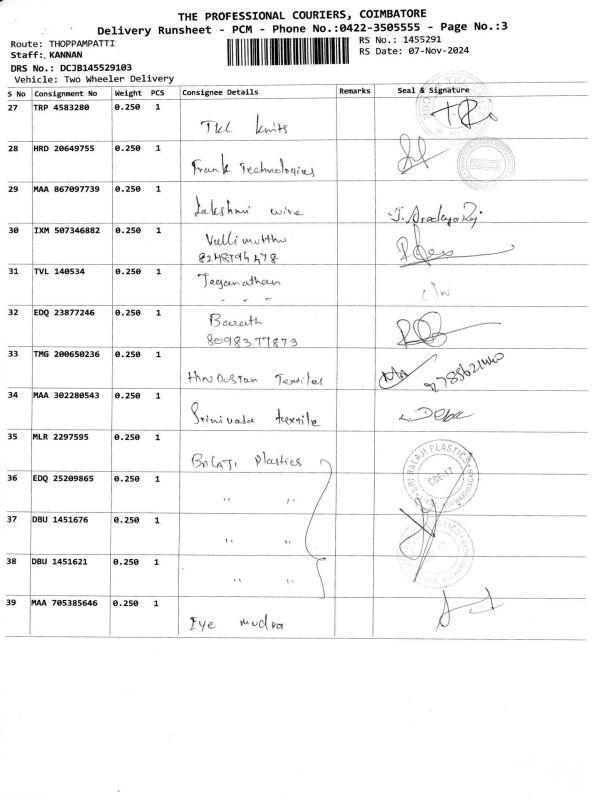 THE PROFESSIONAL COURIERS, COIMBATORE
Delivery Runsheet - PCM - Phone No.:0422-3505555 - Page No.:3
Route: THOPPAMPATTI RS No.: 1455291
Staff: KANNAN RS Date: 07-Nov-2024
DRS No.: DCJB145529103
Vehicle: Two Wheeler Delivery
S No Consignment No Weight PCS Consignee Details Remarks Seal & Signature
27 TRP 4583280 0.250 1
TKL knits
28 HRD 20649755 0.250 1
Frank Technologies
29 MAA 867097739 0.250 1
Lakshmi wire
30 IXM 507346882 0.250 1
Vallimuththu
31 TVL 140534 0.250 1
Jeganathan
32 EDQ 23877246 0.250 1
Barath
8098377873
33 TMG 200650236 0.250 1
Hindustan Textiles
34 MAA 302280543 0.250 1
Srinivasa textile
35 MLR 2297595 0.250 1
BALAJI Plastics
SRI BALAJI PLASTICS
CBE-17
36 EDQ 25209865 0.250 1
" "
37 DBU 1451676 0.250 1
" "
38 DBU 1451621 0.250 1
" "
39 MAA 705385646 0.250 1
Eye mudra